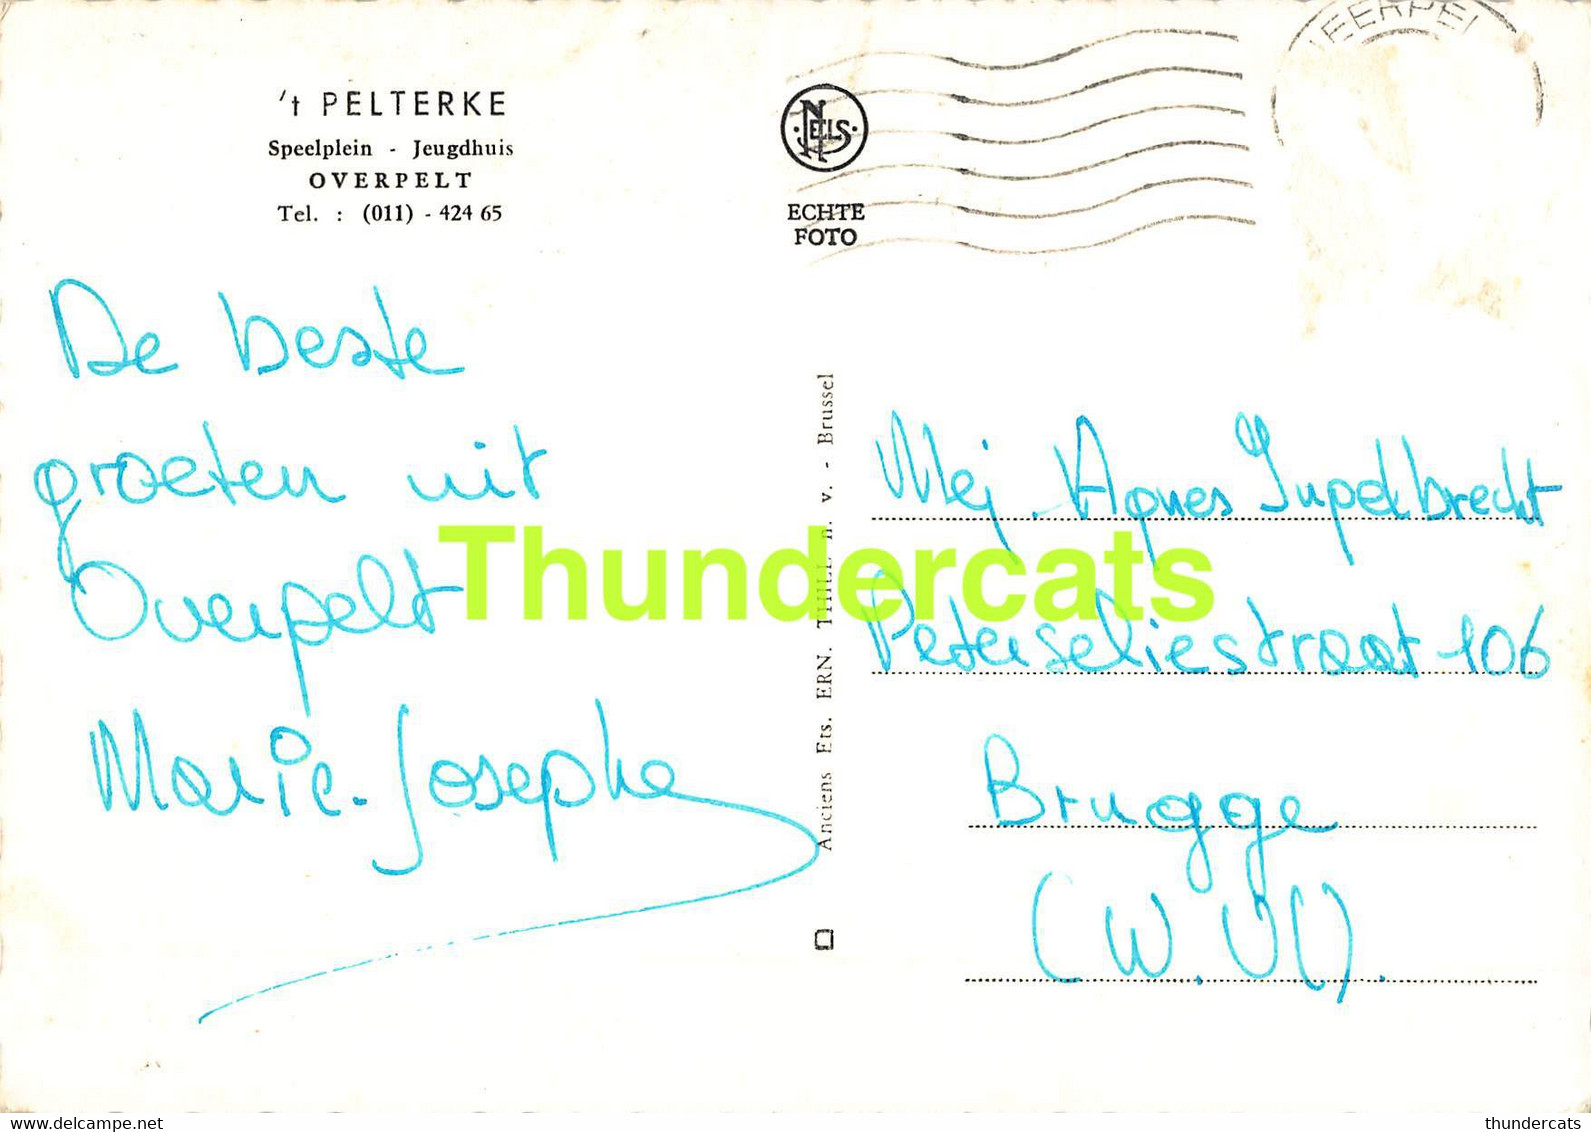 't PELTERKE
Speelplein - Jeugdhuis
OVERPELT
Tel. : (011) - 424 65
NELS
ECHTE
FOTO
NEERPEL
De beste
groeten uit
Overpelt
Marie-Josephe
Anciens Ets. ERN. THILL n. v. - Brussel
Mej. Agnes
Peterseliestraat 106
Brugge
(W. Vl).
Thundercats
www.delcampe.net
thundercats